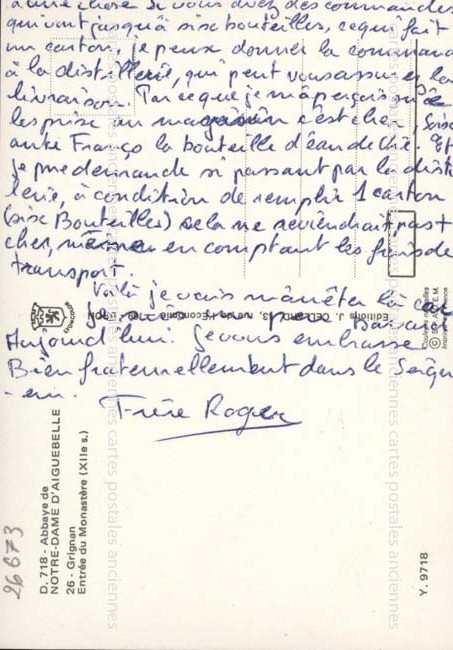 autre chose si vous avez des commandes
qui vont jusqu'à six bouteilles, ce qui fait
un carton, je peux donner la command
à la distillerie, qui peut vous assurer la
livraison. Par ce que je m'aperçois que
les prise au magasin c'est cher, Soix
ante Franço la bouteille d'eau de vie. Et
je me demande si passant par la disti
lerie, à condition de remplir 1 carton
(six Bouteilles) sela ne reviendrait pas +
cher, même en comptant les frais de
transport.
Voilà je vais m'arrêter là car
Aujourd'hui. Je vous embrasse
Bien fraternellement dans le Seign
-eur.
Frère Roger
D. 718 - Abbaye de
NOTRE-DAME D'AIGUEBELLE
26 - Grignan
Entrée du Monastère (XIIe s.)
Editions J. CELLARD
Y. 9718
26673
cartes postales anciennes